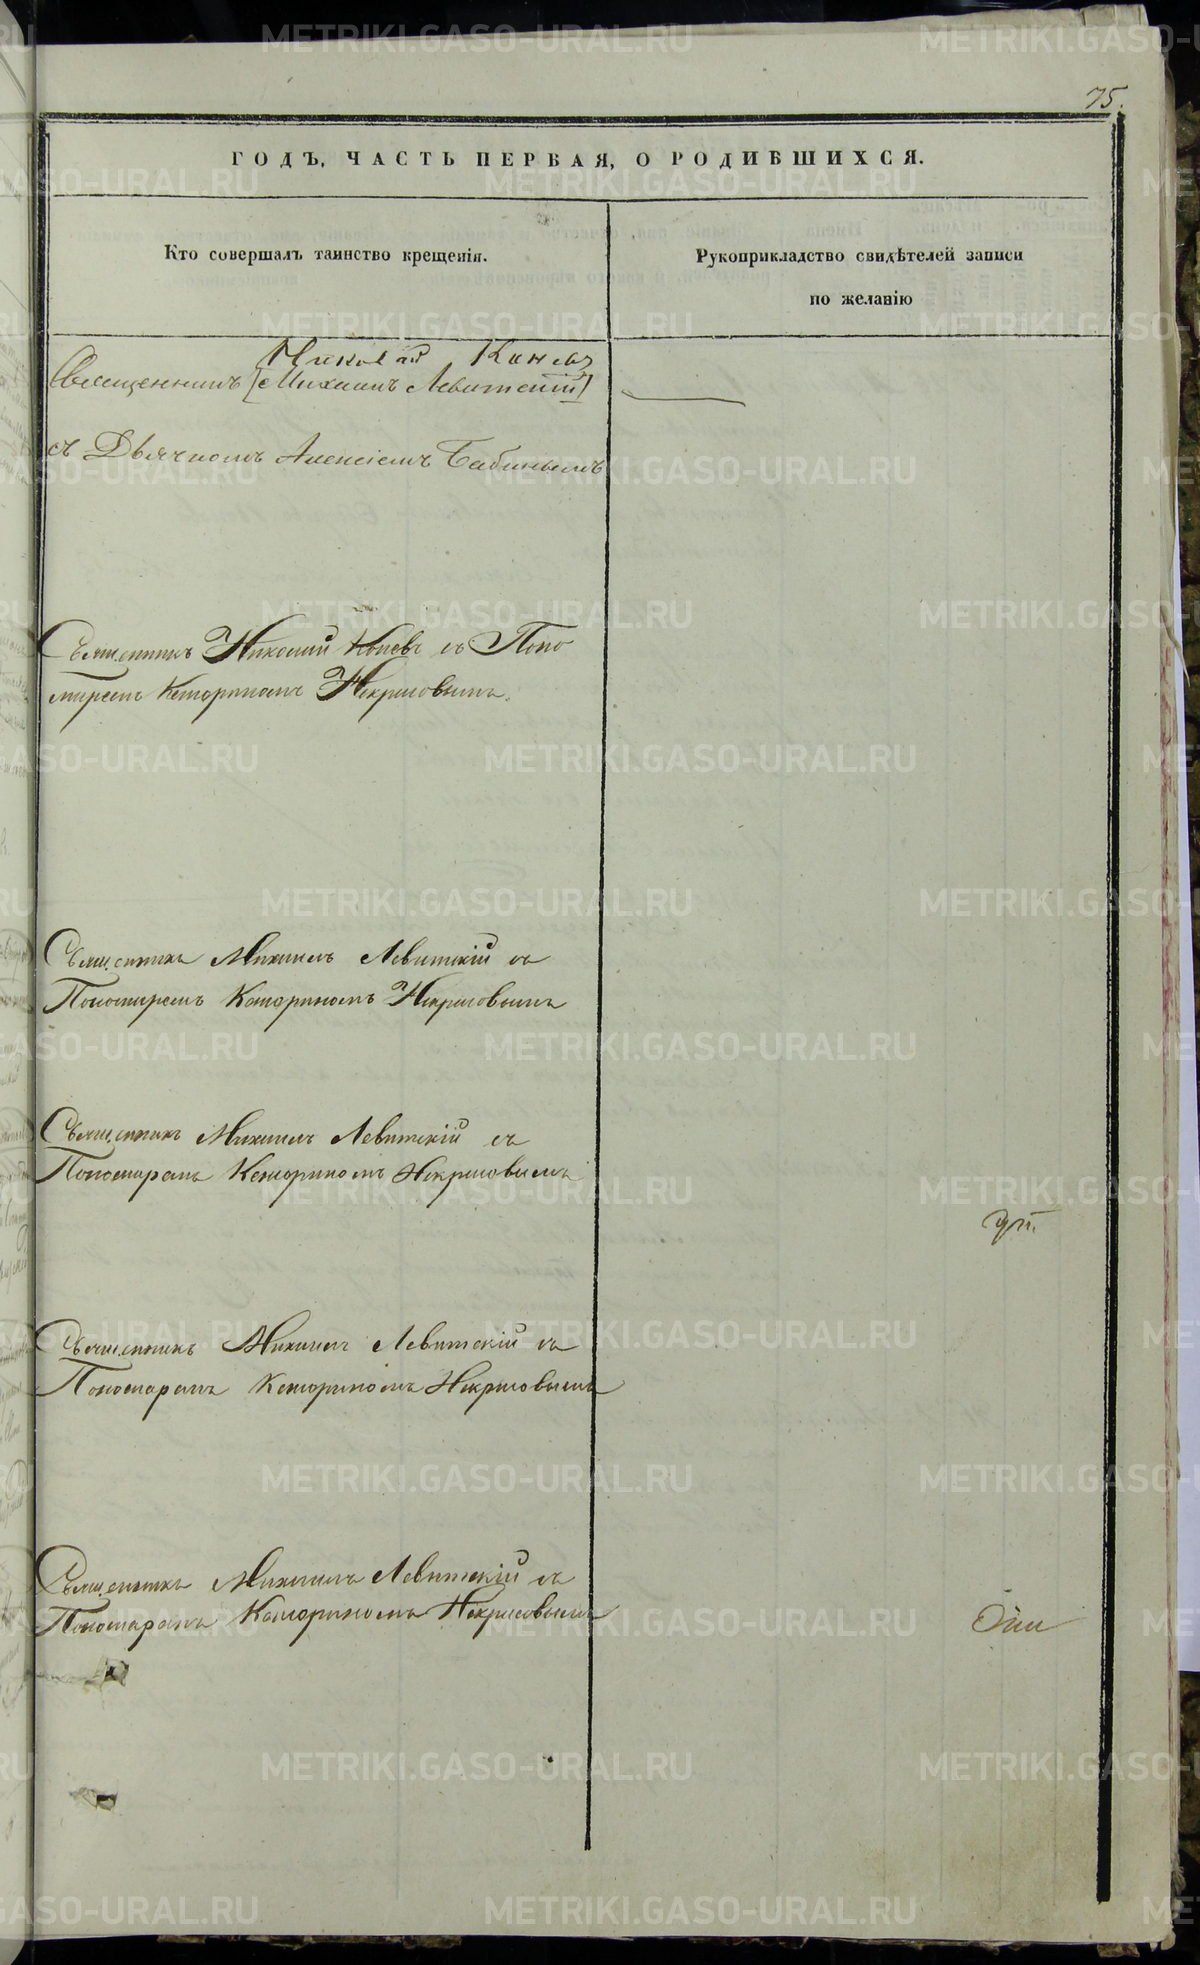 75.
ГОДЪ, ЧАСТЬ ПЕРВАЯ, О РОДИВШИХСЯ.
Кто совершалъ таинство крещенія.
Рукоприкладство свидѣтелей записи
по желанію
Николай Коневъ
Священникъ [Михаилъ Левитскій]
съ Дьячкомъ Алексіемъ Бабинымъ
Священникъ Николай Коневъ съ Поно
маремъ Некрасовымъ.
Священникъ Михаилъ Левитскій съ
Пономаремъ Некрасовымъ
Священникъ Михаилъ Левитскій съ
Пономаремъ Некрасовымъ
Священникъ Михаилъ Левитскій съ
Пономаремъ Некрасовымъ
Священникъ Михаилъ Левитскій съ
Пономаремъ Некрасовымъ
METRIKI.GASO-URAL.RU